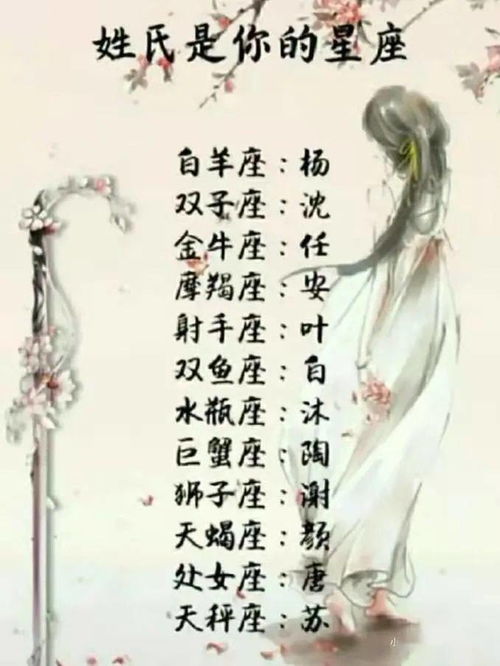 姓氏是你的星座
白羊座：杨
双子座：沈
金牛座：任
摩羯座：安
射手座：叶
双鱼座：白
水瓶座：沐
巨蟹座：陶
狮子座：谢
天蝎座：颜
处女座：唐
天秤座：苏
小